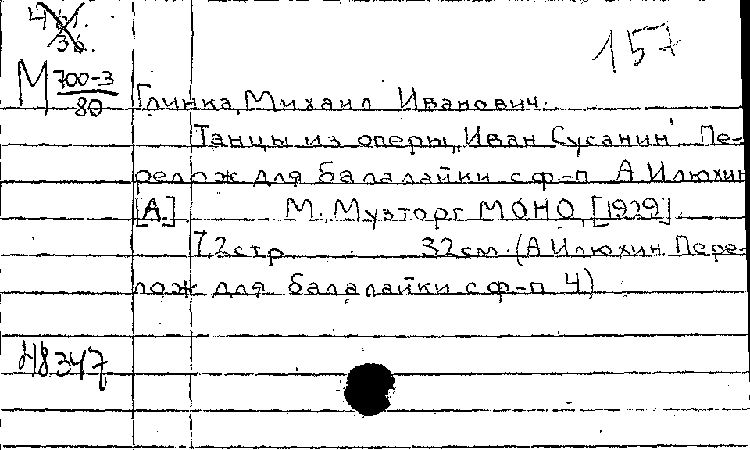 157
М 700-3
80
Глинка, Михаил Иванович.
Танцы из оперы „Иван Сусанин" Пе-
релож для балалайки с ф-п А Илюхин
[А.] М. Музторг МОНО, [1929].
7,2стр 32см (А Илюхин Пере-
лож для балалайки с ф-п 4)
48347